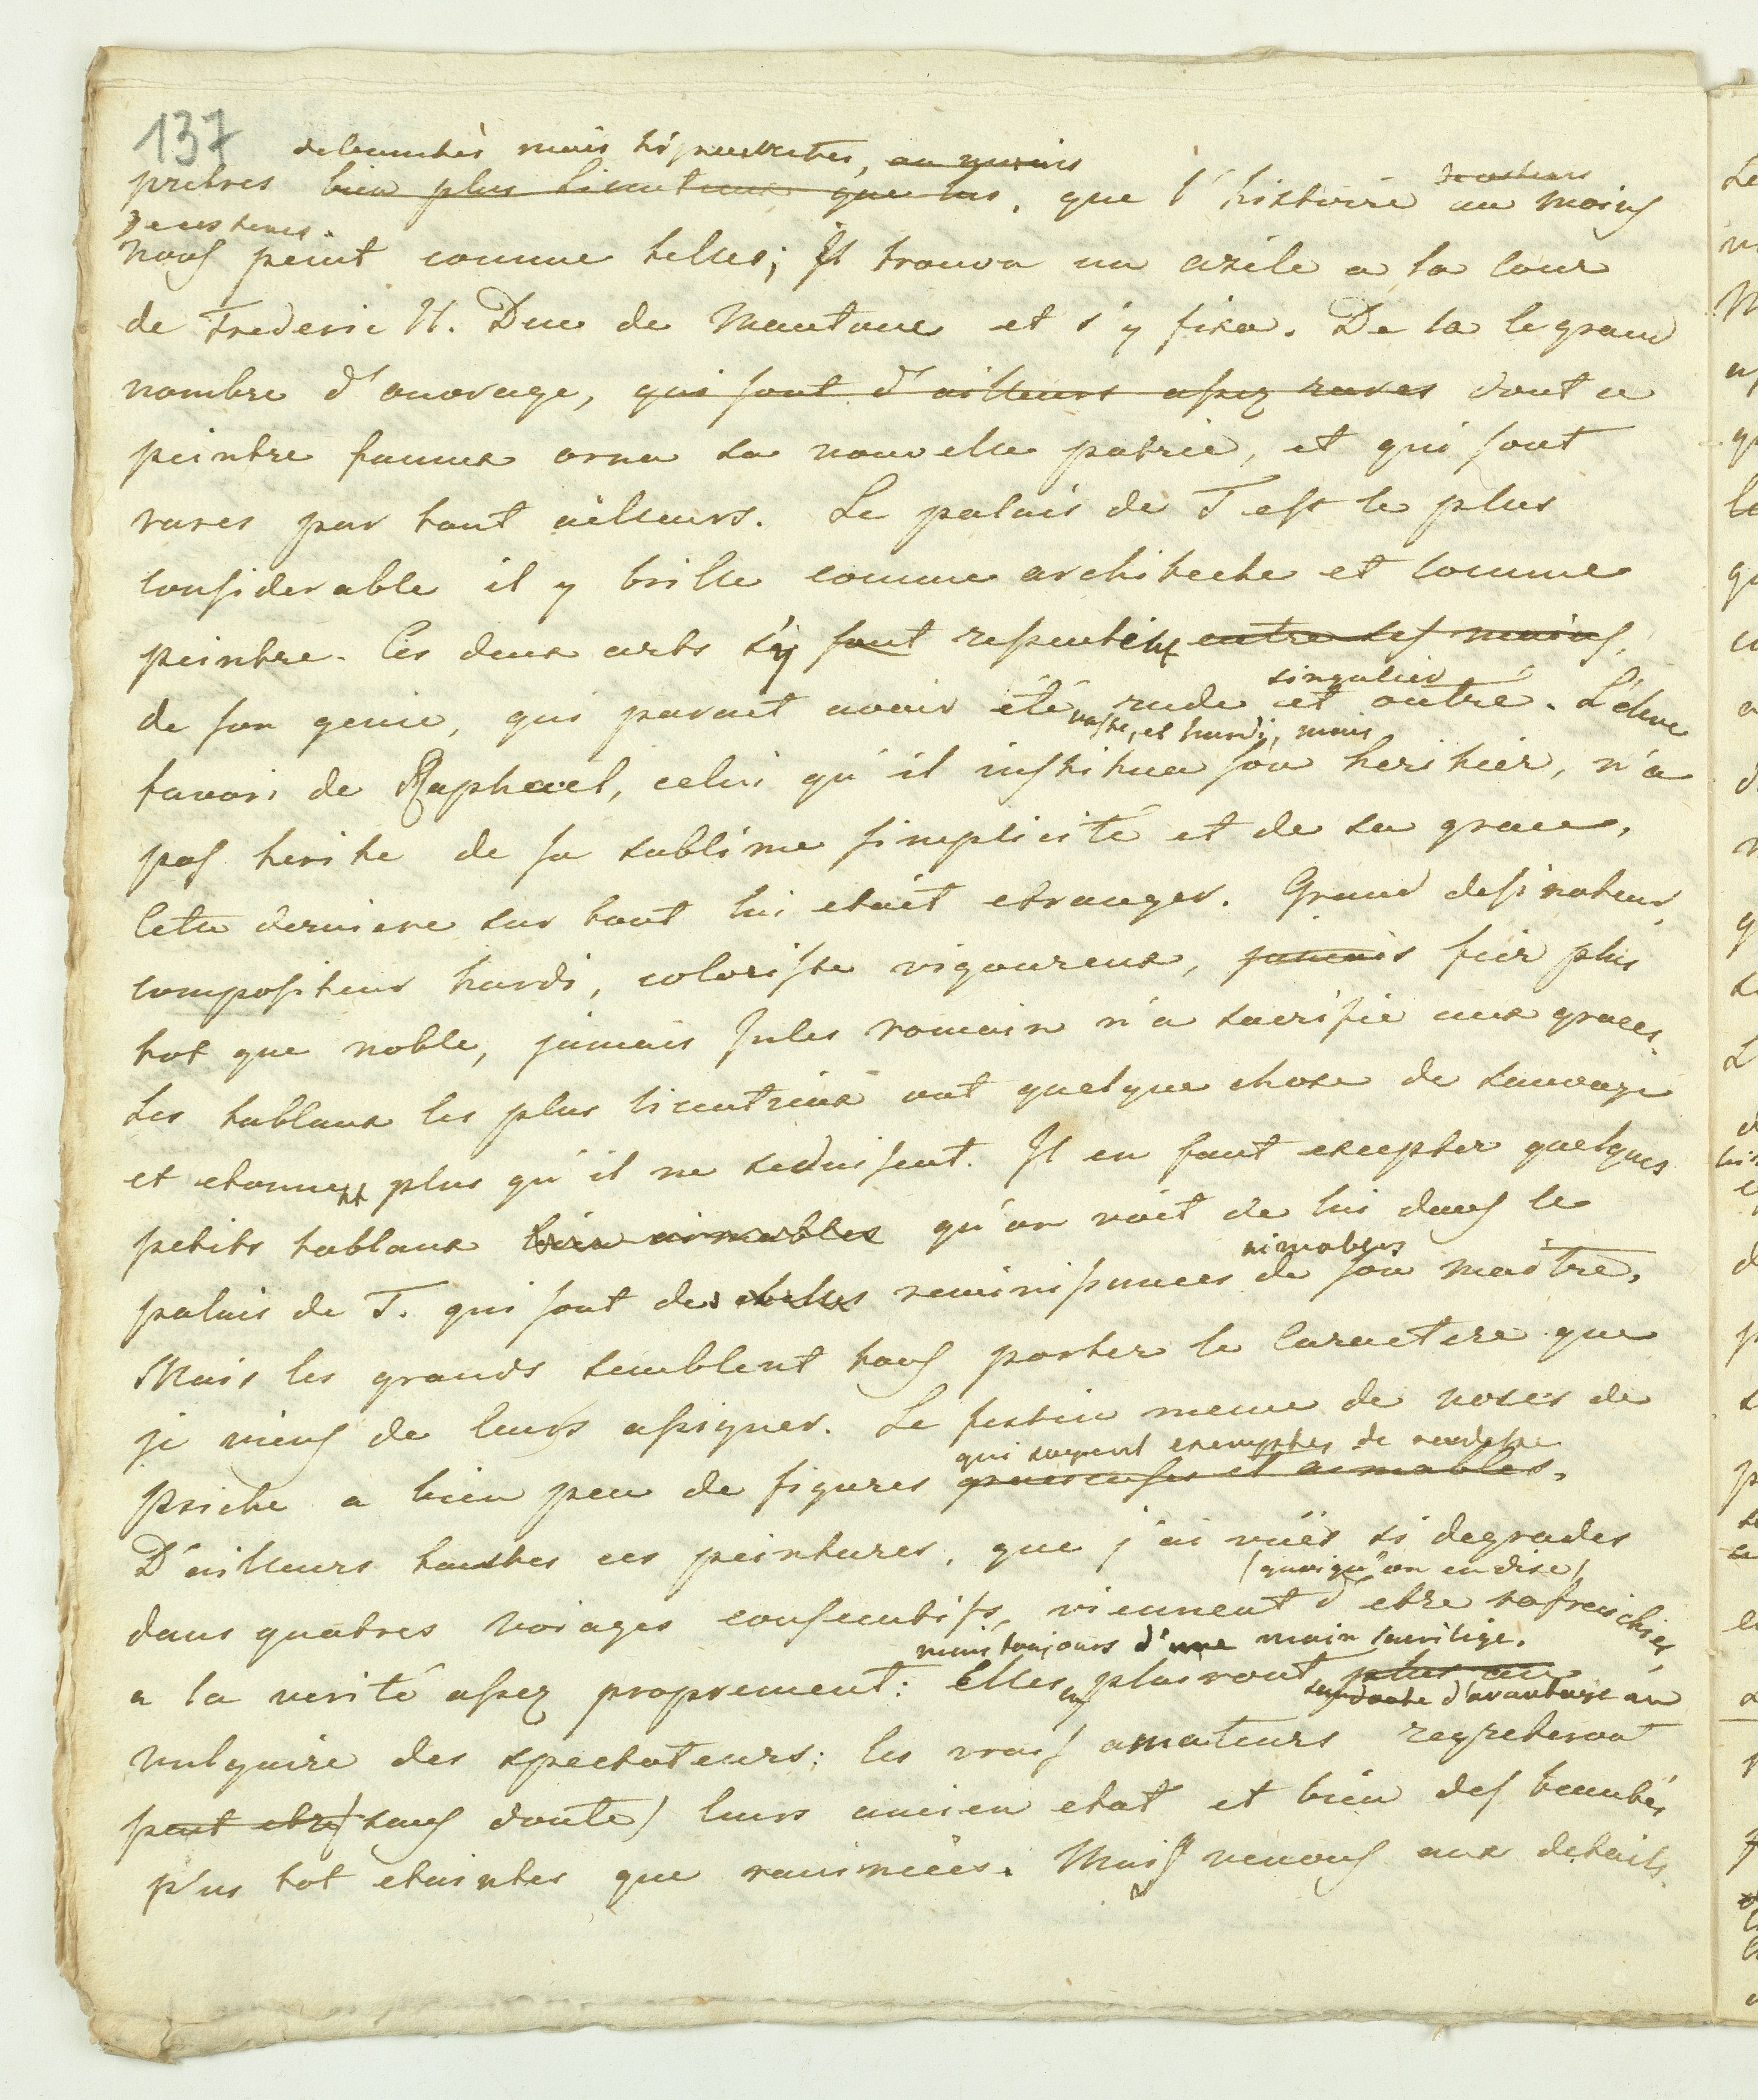 137
debauchés mais hipocrites, au moins
pretres bien plus licentieux que lui, que l'histoire au moins
de ces tems.
nous peint comme telles; Il trouva un azile a la cour
de Frederic II. Duc de Mantoue et s'y fixa. De la le grand
nombre d'ouvrage, qui sont d'ailleurs assez rares dont ce
peintre fameux orna sa nouvelle patrie, et qui sont
rares par tout ailleurs. Le palais de T est le plus
considerable il y brille comme architecte et comme
peintre. Ces deux arts s'y sont ressentent entre ses mains,
singulier
de son genie, qui parait avoir été rude et outré. L'eleve
vaste, et hardi, mais
favori de Raphael, celui qu'il institua son heritier, n'a
pas herite de sa sublime simplicité et de sa grace,
Cette derniere sur tout lui etait etranger. Grand dessinateur,
compositeur hardi, coloriste vigoureux, jamais fier plus
tot que noble, jamais Jules romain n'a sacrifié aux graces.
Les tablaux les plus licentieux ont quelque chose de sauvage
et etonnent plus qu'il ne seduisent. Il en faut excepter quelques
petits tablaux bien aimables qu'on voit de lui dans le
aimables
palais de T. qui sont des belles reminiscences de son maitre.
Mais les grands semblent tous porter le Caractere que
je viens de leurs assigner. Le festin meme de noses de
qui soyent exemptes de rudesse
psiche a bien peu de figures gracieuses et aimables.
D'ailleurs toutes ces peintures, que j'ai vuës si degrades
(quoiqu'on en dise)
dans quatres voiages consecutifs, viennent d'etre rafraichies
mais toujours d'une main sacrilige.
a la verité assez proprement: Elles en plairont plus au
sans doute d'avantage au
vulgaire des spectateurs; les vrais amateurs regreteront
peut etre (sans doute) leurs ancien etat et bien des beautés
plus tot eteintes que ranimées. Mais venons aux details.